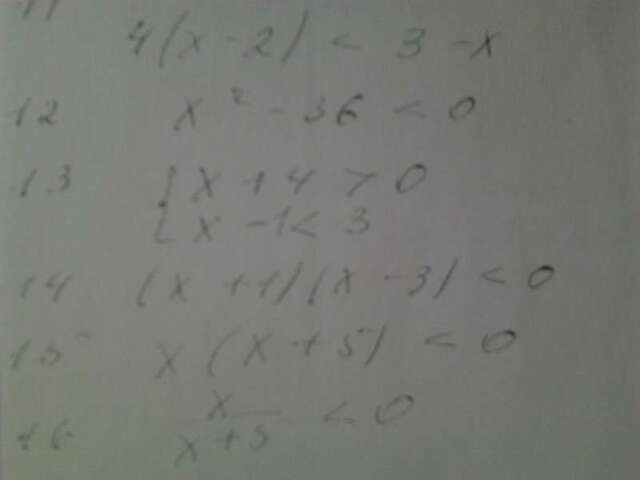 11
4(x-2) < 3-x
12 x² - 36 < 0
13 { x + 4 > 0
x - 1 < 3
14 (x+1)(x-3) < 0
15 x(x+5) < 0
16 x/(x+5) < 0